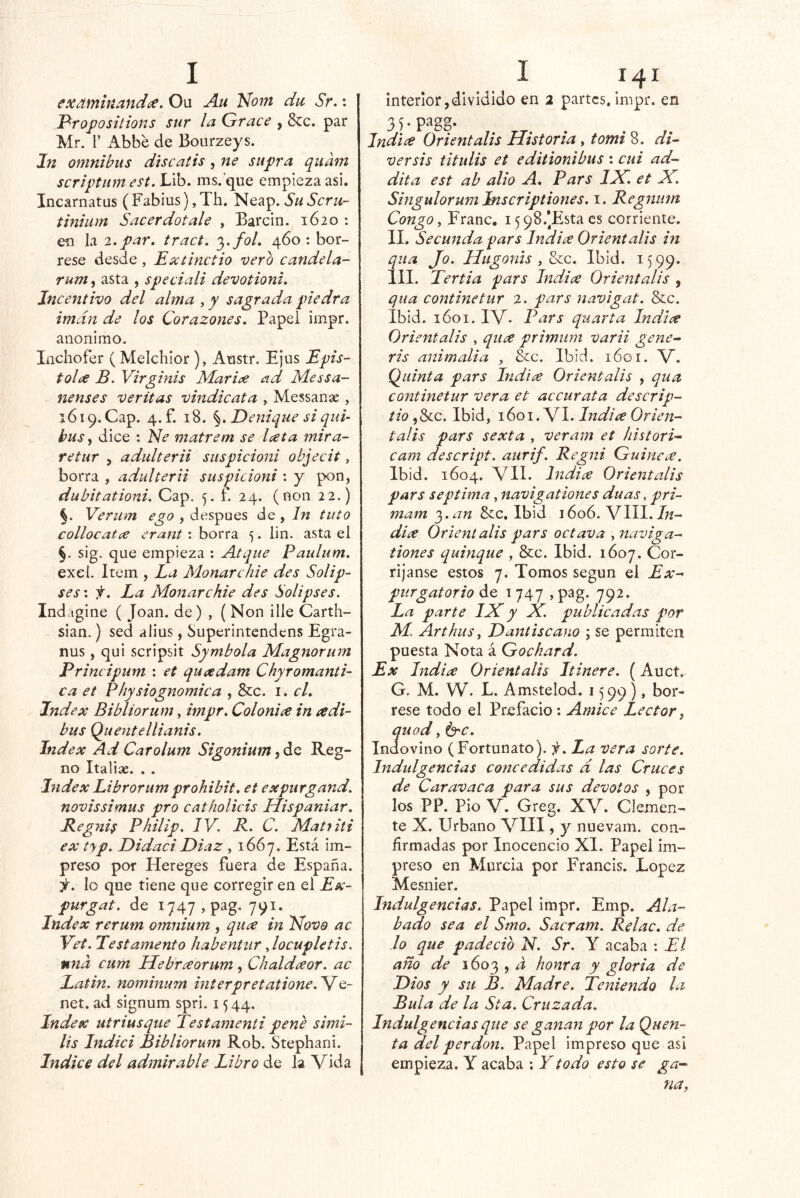 I
examinandæ. Ou Au Nom du Sr.:
Propositions sur la Grace , &c. par
Mr. l' Abbè de Bourzeys.
In omnibus discatis , ne supra quàm
scriptum est. Lib. ms. que empieza asi.
Incarnatus (Fabius), Th. Neap. Su Scru-
tinium Sacerdotale , Barcin. 1620 :
en la 2. par. tract. 3. fol. 460 : bor-
rese desde , Extinctio verò candela-
rum, asta , speciali devotioni.
Incentivo del alma , y sagrada piedra
imán de los Corazones. Papel impr.
anonimo.
Inchofer ( Melchior ), Austr. Ejus Epis-
tolæ B. Virginis Mariæ ad Messa-
nenses veritas vindicata , Messanæ ,
1619. Cap. 4. f. 18. §. Denique si qui-
bus, dice : Ne matrem se læta mira-
retur , adulterii suspicioni objecit ,
borra , adulterii suspicioni : y pon,
dubitationi. Cap. 5. f. 24. (non 22.)
§. Verum ego , despues de , In tuto
collocatæ erant : borra 5. lin. asta el
§. sig. que empieza : Atque Paulum.
exel. Item , La Monarchie des Solip-
ses: ℣. La Monarchie des Solipses.
Indagine ( Joan. de) , (Non ille Carth-
sian.) sed alius, Superintendens Egra-
nus , qui scripsit Symbola Magnorum
Principum : et quædam Chyromanti-
ca et Physiognomica , &c. 1. cl.
Index Bibliorum, impr. Coloniæ in ædi-
bus Quentellianis.
Index Ad Carolum Sigonium, de Reg-
no Italiæ. . .
Index Librorum prohibit. et expurgand.
novissimus pro catholicis Hispaniar.
Regnis Philip. IV. R. C. Matriti
ex typ. Didaci Diaz , 1667. Está im-
preso por Hereges fuera de España.
℣. lo que tiene que corregir en el Ex-
purgat. de 1747 , pag. 791.
Index rerum omnium , quæ in Novo ac
Vet. Testamento habentur, locupletis.
unà cum Hebræorum, Chaldæor. ac
Latin. nominum interpretatione. Ve-
net. ad signum spri. 1544.
Index utriusque Testamenti penè simi-
lis Indici Bibliorum Rob. Stephani.
Indice del admirable Libro de la Vida
I 141
interior, dividido en 2 partes. impr. en
35. pagg.
Indiæ Orientalis Historia, tomi 8. di-
versis titulis et editionibus : cui ad-
dita est ab alio A. Pars IX. et X.
Singulorum Inscriptiones. 1. Regnum
Congo, Franc. 1598. Esta es corriente.
II. Secunda pars Indiæ Orientalis in
qua Jo. Hugonis , &c. Ibid. 1599.
III. Tertia pars Indiæ Orientalis ,
qua continetur 2. pars navigat. &c.
Ibid. 1601. IV. Pars quarta Indiæ
Orientalis , quæ primum varii gene-
ris animalia , &c. Ibid. 1601. V.
Quinta pars Indiæ Orientalis , qua
continetur vera et accurata descrip-
tio, &c. Ibid, 1601. VI. Indiæ Orien-
talis pars sexta , veram et histori-
cam descript. aurif. Regni Guineæ.
Ibid. 1604. VII. Indiæ Orientalis
pars septima, navigationes duas, pri-
mam 3. an &c. Ibid 1606. VIII. In-
diæ Orientalis pars octava , naviga-
tiones quinque , &c. Ibid. 1607. Cor-
rijanse estos 7. Tomos segun el Ex-
purgatorio de 1747 , pag. 792.
La parte IX y X. publicadas por
M. Arthus, Dantiscano ; se permiten
puesta Nota á Gochard.
Ex Indiæ Orientalis Itinere. (Auct.
G. M. W. L. Amstelod. 1599), bor-
rese todo el Prefacio : Amice Lector,
quod, &c.
Indovino (Fortunato). ℣. La vera sorte.
Indulgencias concedidas á las Cruces
de Caravaca para sus devotos , por
los PP. Pio V. Greg. XV. Clemen-
te X. Urbano VIII, y nuevam. con-
firmadas por Inocencio XI. Papel im-
preso en Murcia por Francis. Lopez
Mesnier.
Indulgencias. Papel impr. Emp. Ala-
bado sea el Smo. Sacram. Relac. de
lo que padeciò N. Sr. Y acaba : El
año de 1603 , à honra y gloria de
Dios y su B. Madre. Teniendo la
Bula de la Sta. Cruzada.
Indulgencias que se ganan por la Quen-
ta del perdon. Papel impreso que asi
empieza. Y acaba : Y todo esto se ga-
na,